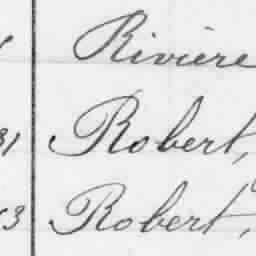 Rivière
31 Robert,
13 Robert,